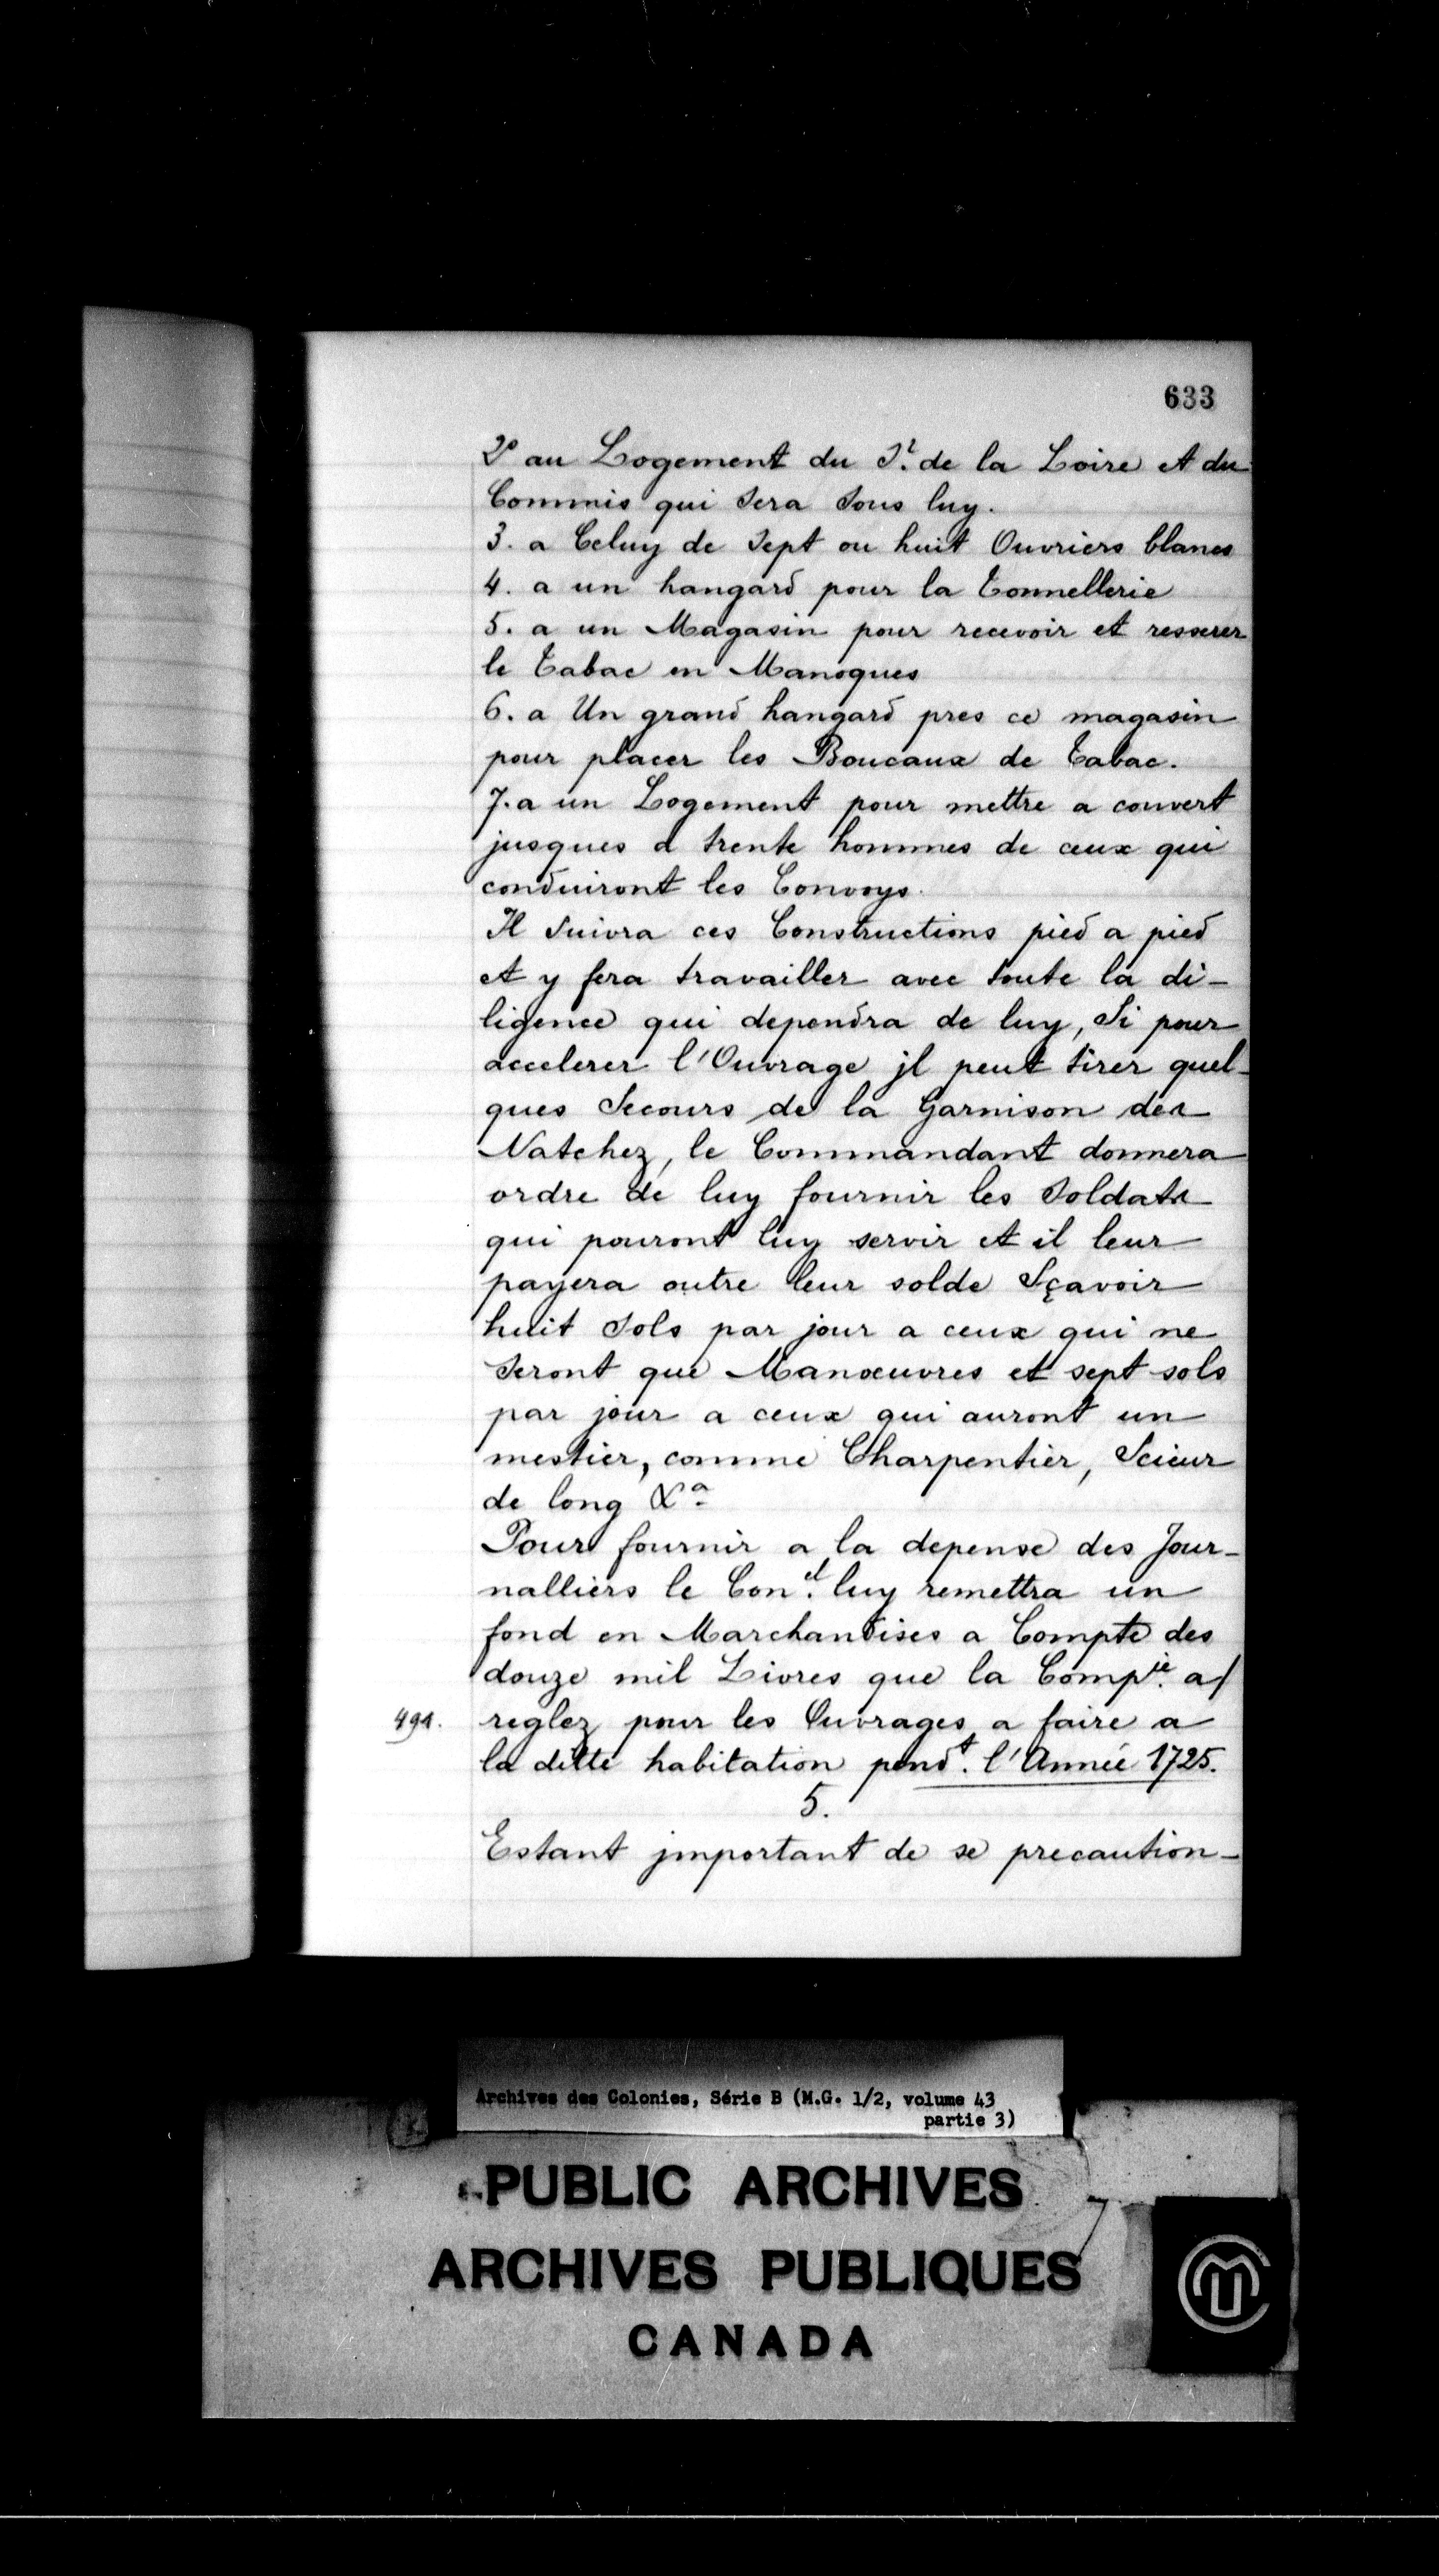 633
2º au Logement du Sr. de la Loire et du
Commis qui sera sous luy.
3. a Celuy de sept ou huit Ouvriers blancs
4. a un hangard pour la Tonnellerie
5. a un Magasin pour recevoir et resserer
le Tabac en Manoques
6. a Un grand hangard pres ce magasin
pour placer les Boucaux de Tabac.
7. a un Logement pour mettre a couvert
jusques a trente hommes de ceux qui
conduiront les Convoys.
Il suivra ces Constructions pied a pied
et y fera travailler avec toute la di-
ligence qui dependra de luy, Si pour
accelerer l'Ouvrage jl peut tirer quel-
ques Secours de la Garnison des
Natchez, le Commandant donnera
ordre de luy fournir les Soldats
qui pouront luy servir et il leur
payera outre leur solde Sçavoir
huit sols par jour a ceux qui ne
seront que Manœuvres et sept sols
par jour a ceux qui auront un
mestier, comme Charpentier, Scieur
de long &a
Pour fournir a la depense des Jour-
nalliers le Con.el luy remettra un
fond en Marchandises a Compte des
douze mil Livres que la Comp.ie a/
491. reglez pour les Ouvrages a faire a
la ditte habitation pend.t l'Année 1725.
5.
Estant jmportant de se precaution-
Archives des Colonies, Série B (M.G. 1/2, volume 43
partie 3)
PUBLIC ARCHIVES
ARCHIVES PUBLIQUES
CANADA